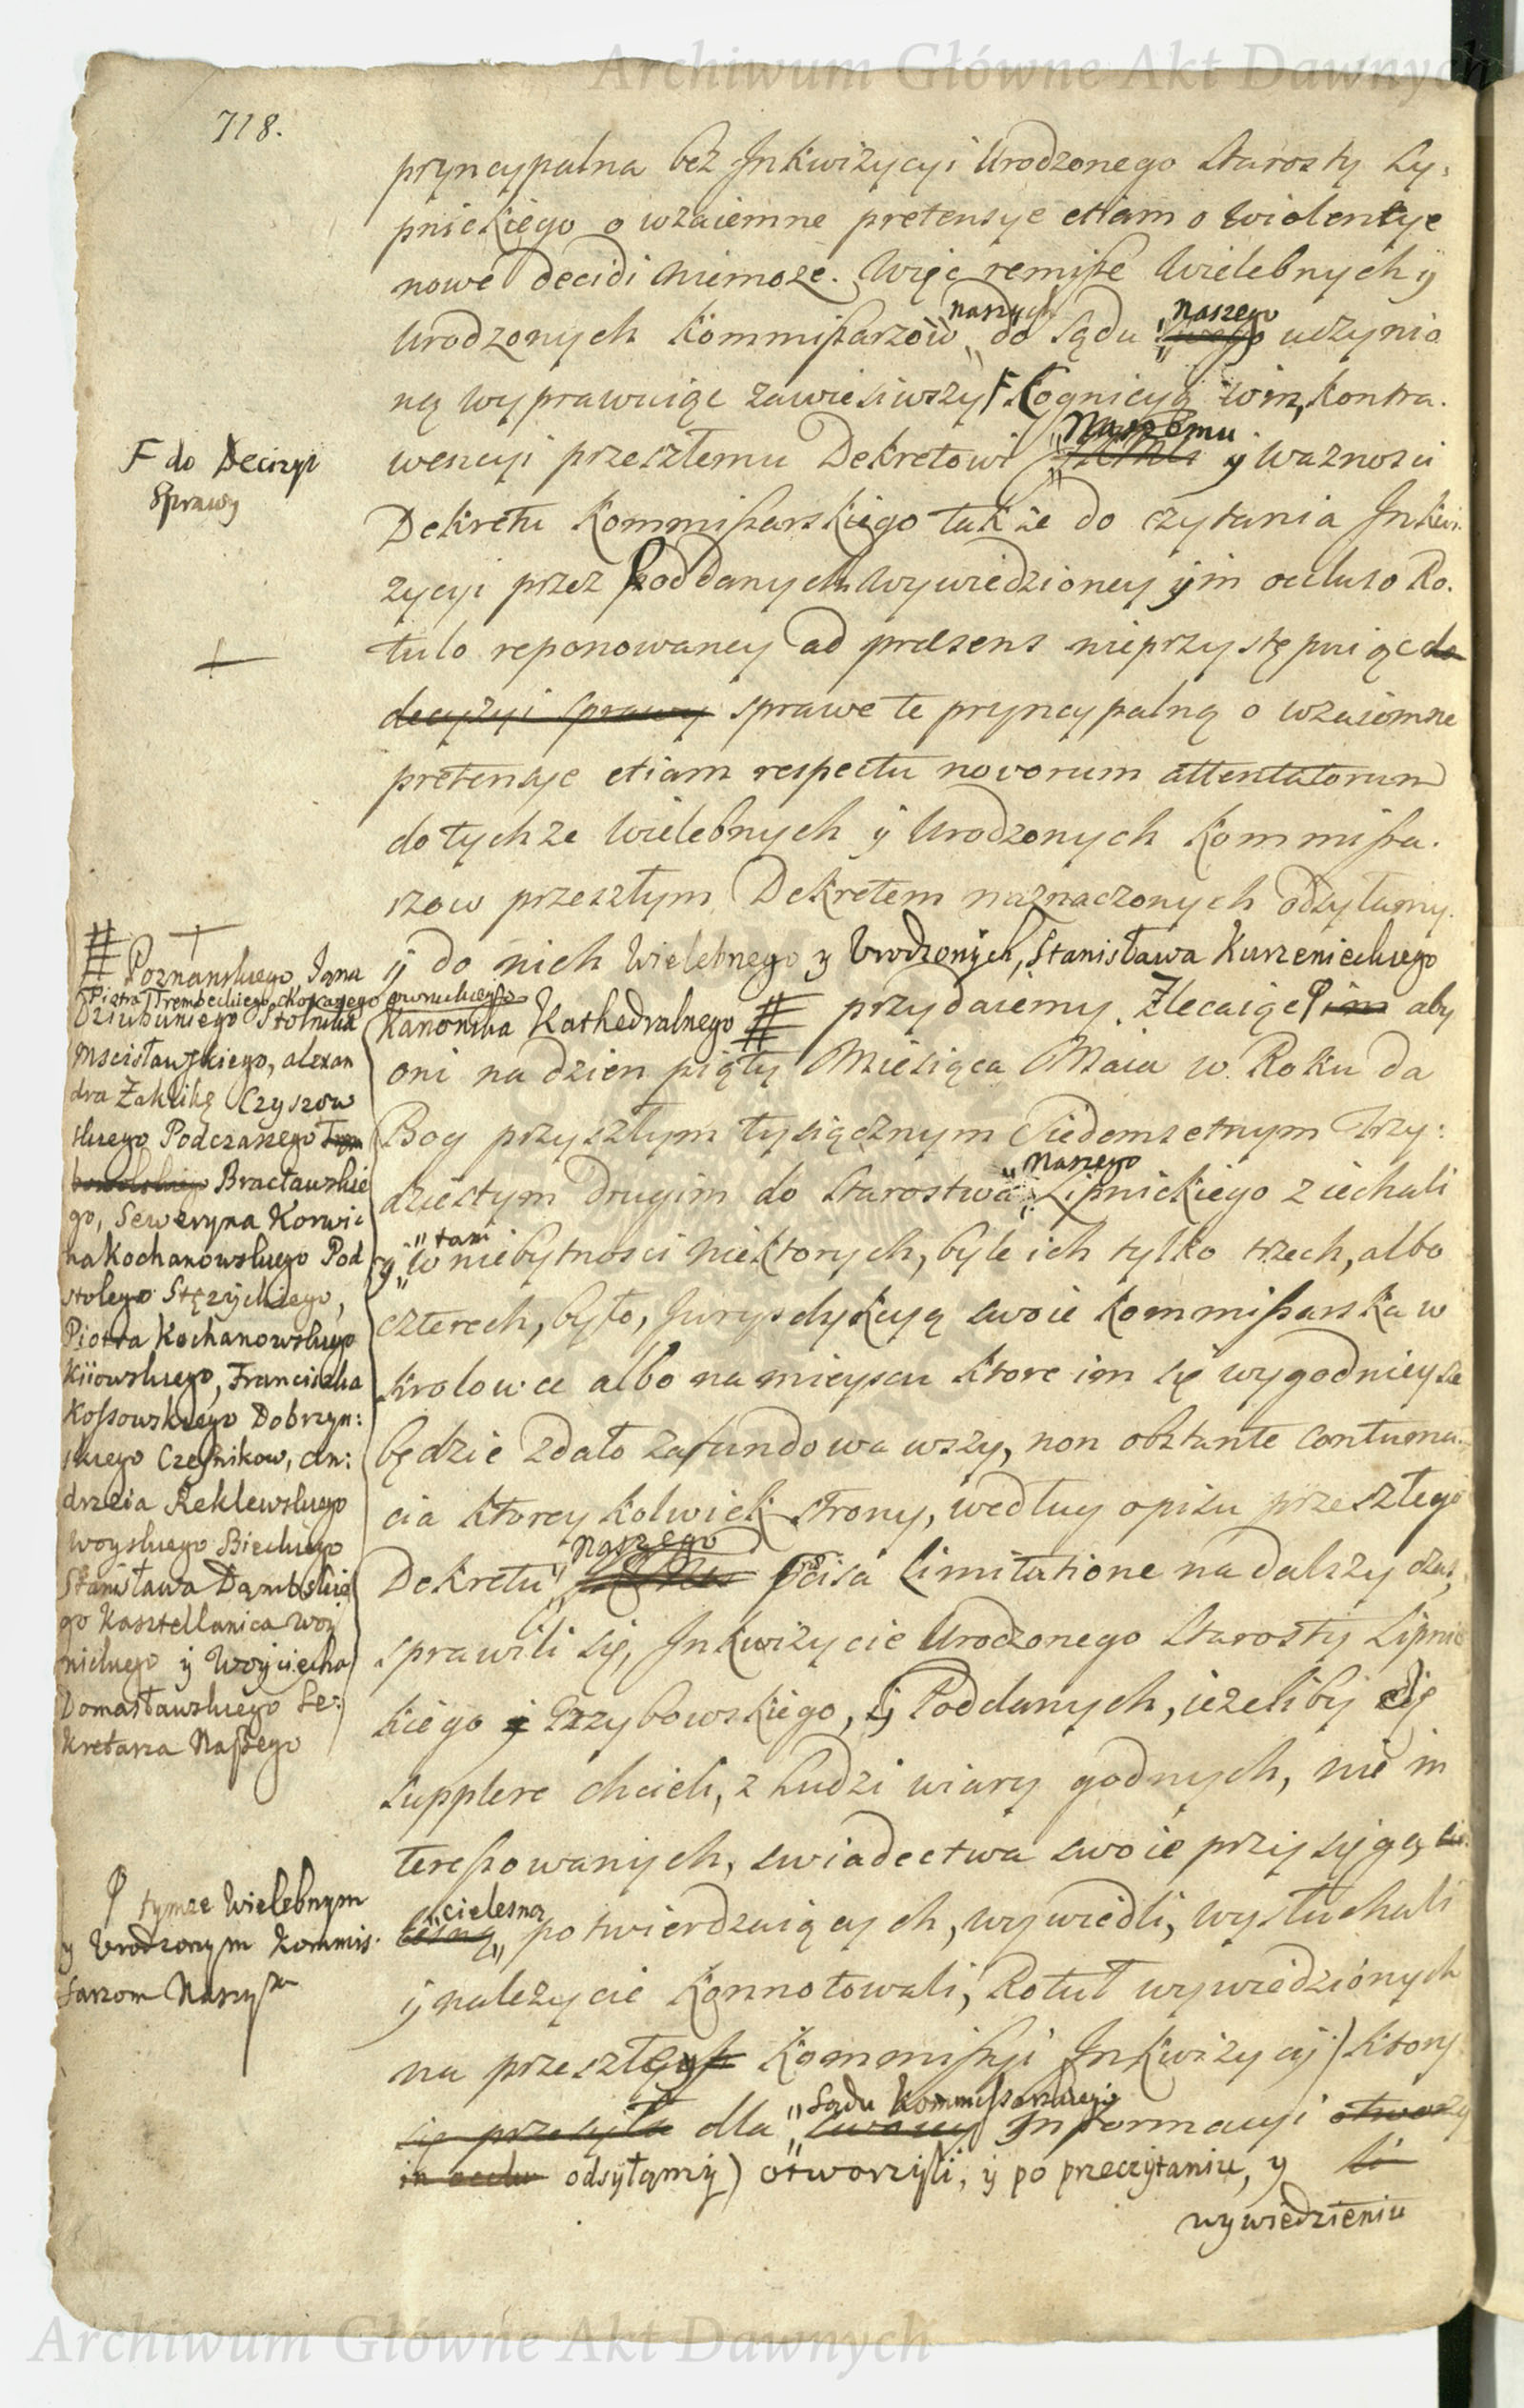 Archiwum Główne Akt Dawnych
718.
pryncypalna bez Inkwizycyi Urodzonego Starosty Ly:
pnickiego o wzaiemne pretensye etiam o wiolencye
nowe decidi niemoze. Więc remisse Wielebnych y
Urodzonych Kommissarzow naszych do Sądu naszego uczynio
ną wyprawuiąc zawiesiwszy F Kognicyą win, kontra.
wencyi przeszłemu Dekretowi Naszemu y waznosci
F do Decizyi
Sprawy
Dekretu Kommissarskiego także do czytania Inkwi.
zycyi przez Poddanych wywiedzioney y im occluso Ro.
tulo reponowaney ad praesens nieprzystępuiąc do
decyzyi sprawy sprawe te pryncypalną o wzaiemne
pretensye etiam respectu novorum attentatorum
do tychze Wielebnych y Urodzonych Kommissa.
rzow przeszłym Dekretem naznaczonych odsyłamy.
y do nich Wielebnego y Urodzonych, Stanisława Kurzenieckiego
Kanonika Kathedralnego # przydaiemy. Zlecaiąc im aby
oni na dzien piąty Miesiąca Maia w Roku da
Bog przyszłym tysiącznym Siedemsetnym trzy:
dziestym drugim do Starostwa Naszego Lipnickiego ziechali
y tam w niebytnosci niektorych, byle ich tylko trzech, albo
czterech, było, Jurysdykcyą swoie Kommissarska w
Krolowce albo na mieyscu ktore im się wygodnieysze
będzie zdało zafundowawszy, non obstante contuma.
cia ktorey kolwiek strony, według opisu przeszłego
Dekretu Naszego Scisa limitatione na dalszy czas,
sprawili się, Inkwizycie Urodzonego Starosty Lipnic
kiego y Grzybowskiego, y Poddanych, iezeliby się
supplere chcieli, z Ludzi wiary godnych, nie in
teressowanych, swiadectwa swoie przysięgą
cielesną potwierdzaiących, wywiedli, wysłuchali
y należycie konnotowali, Rotuł wywiedzionych
na przeszłey Kommissyi Inkwizycyi) ktory
się przesyła dla Sądu Kommissarskiego Informacyi otworzy
in occlu odsyłamy) otworzyli, y po przeczytaniu, y li
wywiedzieniu
# Poznanskiego Igna
Piotra Trembeckiego
Dziubiniego Stolnika
Mscisławskiego, alexan
dra Zaklikę Czyszow
skiego Podczaszego
Bracławskie
go, Seweryna Korwi
na Kochanowskiego Pod
stolego Stężyckiego,
Piotra Kochanowskiego
Kiiowskiego, Franciszka
Kossowskiego Dobrzyn:
skiego Czesnikow, An:
drzeia Reklewskiego
Woyskiego Bieckiego
Stanisława Dąmbskie
go Kasztellanica Woy
nickiego y Woyciecha
Domasławskiego Se:
kretarza Naszego
tymze Wielebnym
y Urodzonym Kommis.
sarzom Naszym
Archiwum Główne Akt Dawnych